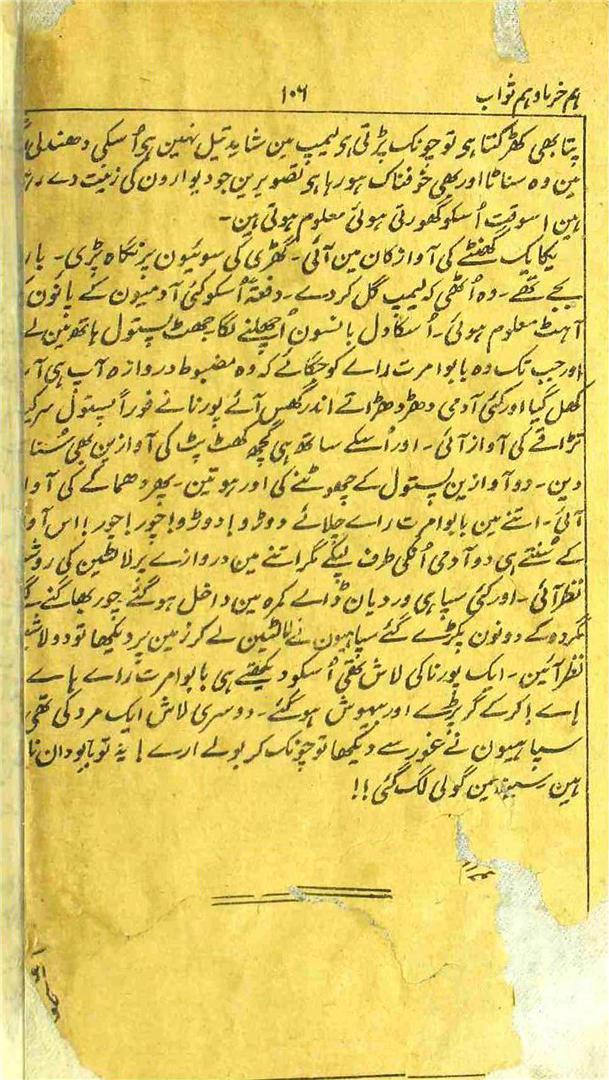 ہم خرما و ہم ثواب ۱۰۶
پتا بھی کھڑکتا ہو تو چونک پڑتی ہو لیمپ مین شاید تیل نہین ہو اُسکی دھندلی
مین وہ سناٹا اور بھی خوفناک ہو رہا ہو تصویرین جو دیوارون کی زینت دے رہی
ہین اسوقت اُسکو گھورتی ہوئی معلوم ہوتی ہین۔
یکایک گھنٹے کی آواز کان مین آئی۔ گھڑی کی سوئیون پر نگاہ پڑی۔ بارہ
بجے تھے۔ وہ اُٹھی کہ لیمپ گل کر دے۔ دفعتہً اُسکو کئی آدمیون کے پانون کی
آہٹ معلوم ہوئی۔ اُسکا دل بانسون اُچھلنے لگا جھٹ پستول ہاتھ مین لے
اور جب تک وہ بابو امرت راے کو جگائے کہ وہ مضبوط دروازہ آپ ہی آپ
کھل گیا اور کئی آدمی دھڑدھڑاتے اندر گھس آئے پورنا نے فوراً پستول سر کیا
تڑاقے کی آواز آئی۔ اور اُسکے ساتھ ہی کچھ کھٹ پٹ کی آوازین بھی سُنائی
دین۔ دو آوازین پستول کے چھوٹنے کی اور ہوتین۔ پھر دھماکے کی آواز
آئی۔ اتنے مین بابو امرت راے چلائے دوڑو! دوڑو! چور! چور! اس آواز
کے سُنتے ہی دو آدمی اُنکی طرف لپکے مگر اتنے مین دروازے پر لالٹین کی روشنی
نظر آئی۔ اور کئی سپاہی وردیان ڈاے کمرہ مین داخل ہو گئے چور بھاگنے لگے
مگر دہ کے دونون پکڑے گئے سپاہیون نے لالٹین لے کر زمین پر دیکھا تو دو لاشین
نظر آئین۔ ایک پورنا کی لاش تھی اُسکو دیکھتے ہی بابو امرت راے ہاے
ہاے! کرکے گر پڑے اور بیہوش ہو گئے۔ دوسری لاش ایک مرد کی تھی
سپاہییون نے غور سے دیکھا تو چونک کر بولے ارے! یہ تو بابو دان نا
ہین سینہ مین گولی لگ گئی!!